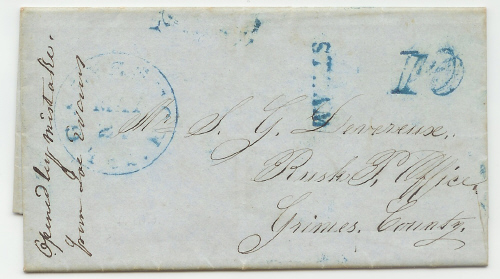 Opened by mistake.
from Joe Evans
MAY
STEAM
10
Mr. S. G. Devereux.
Rusk P. Office
Grimes. County.